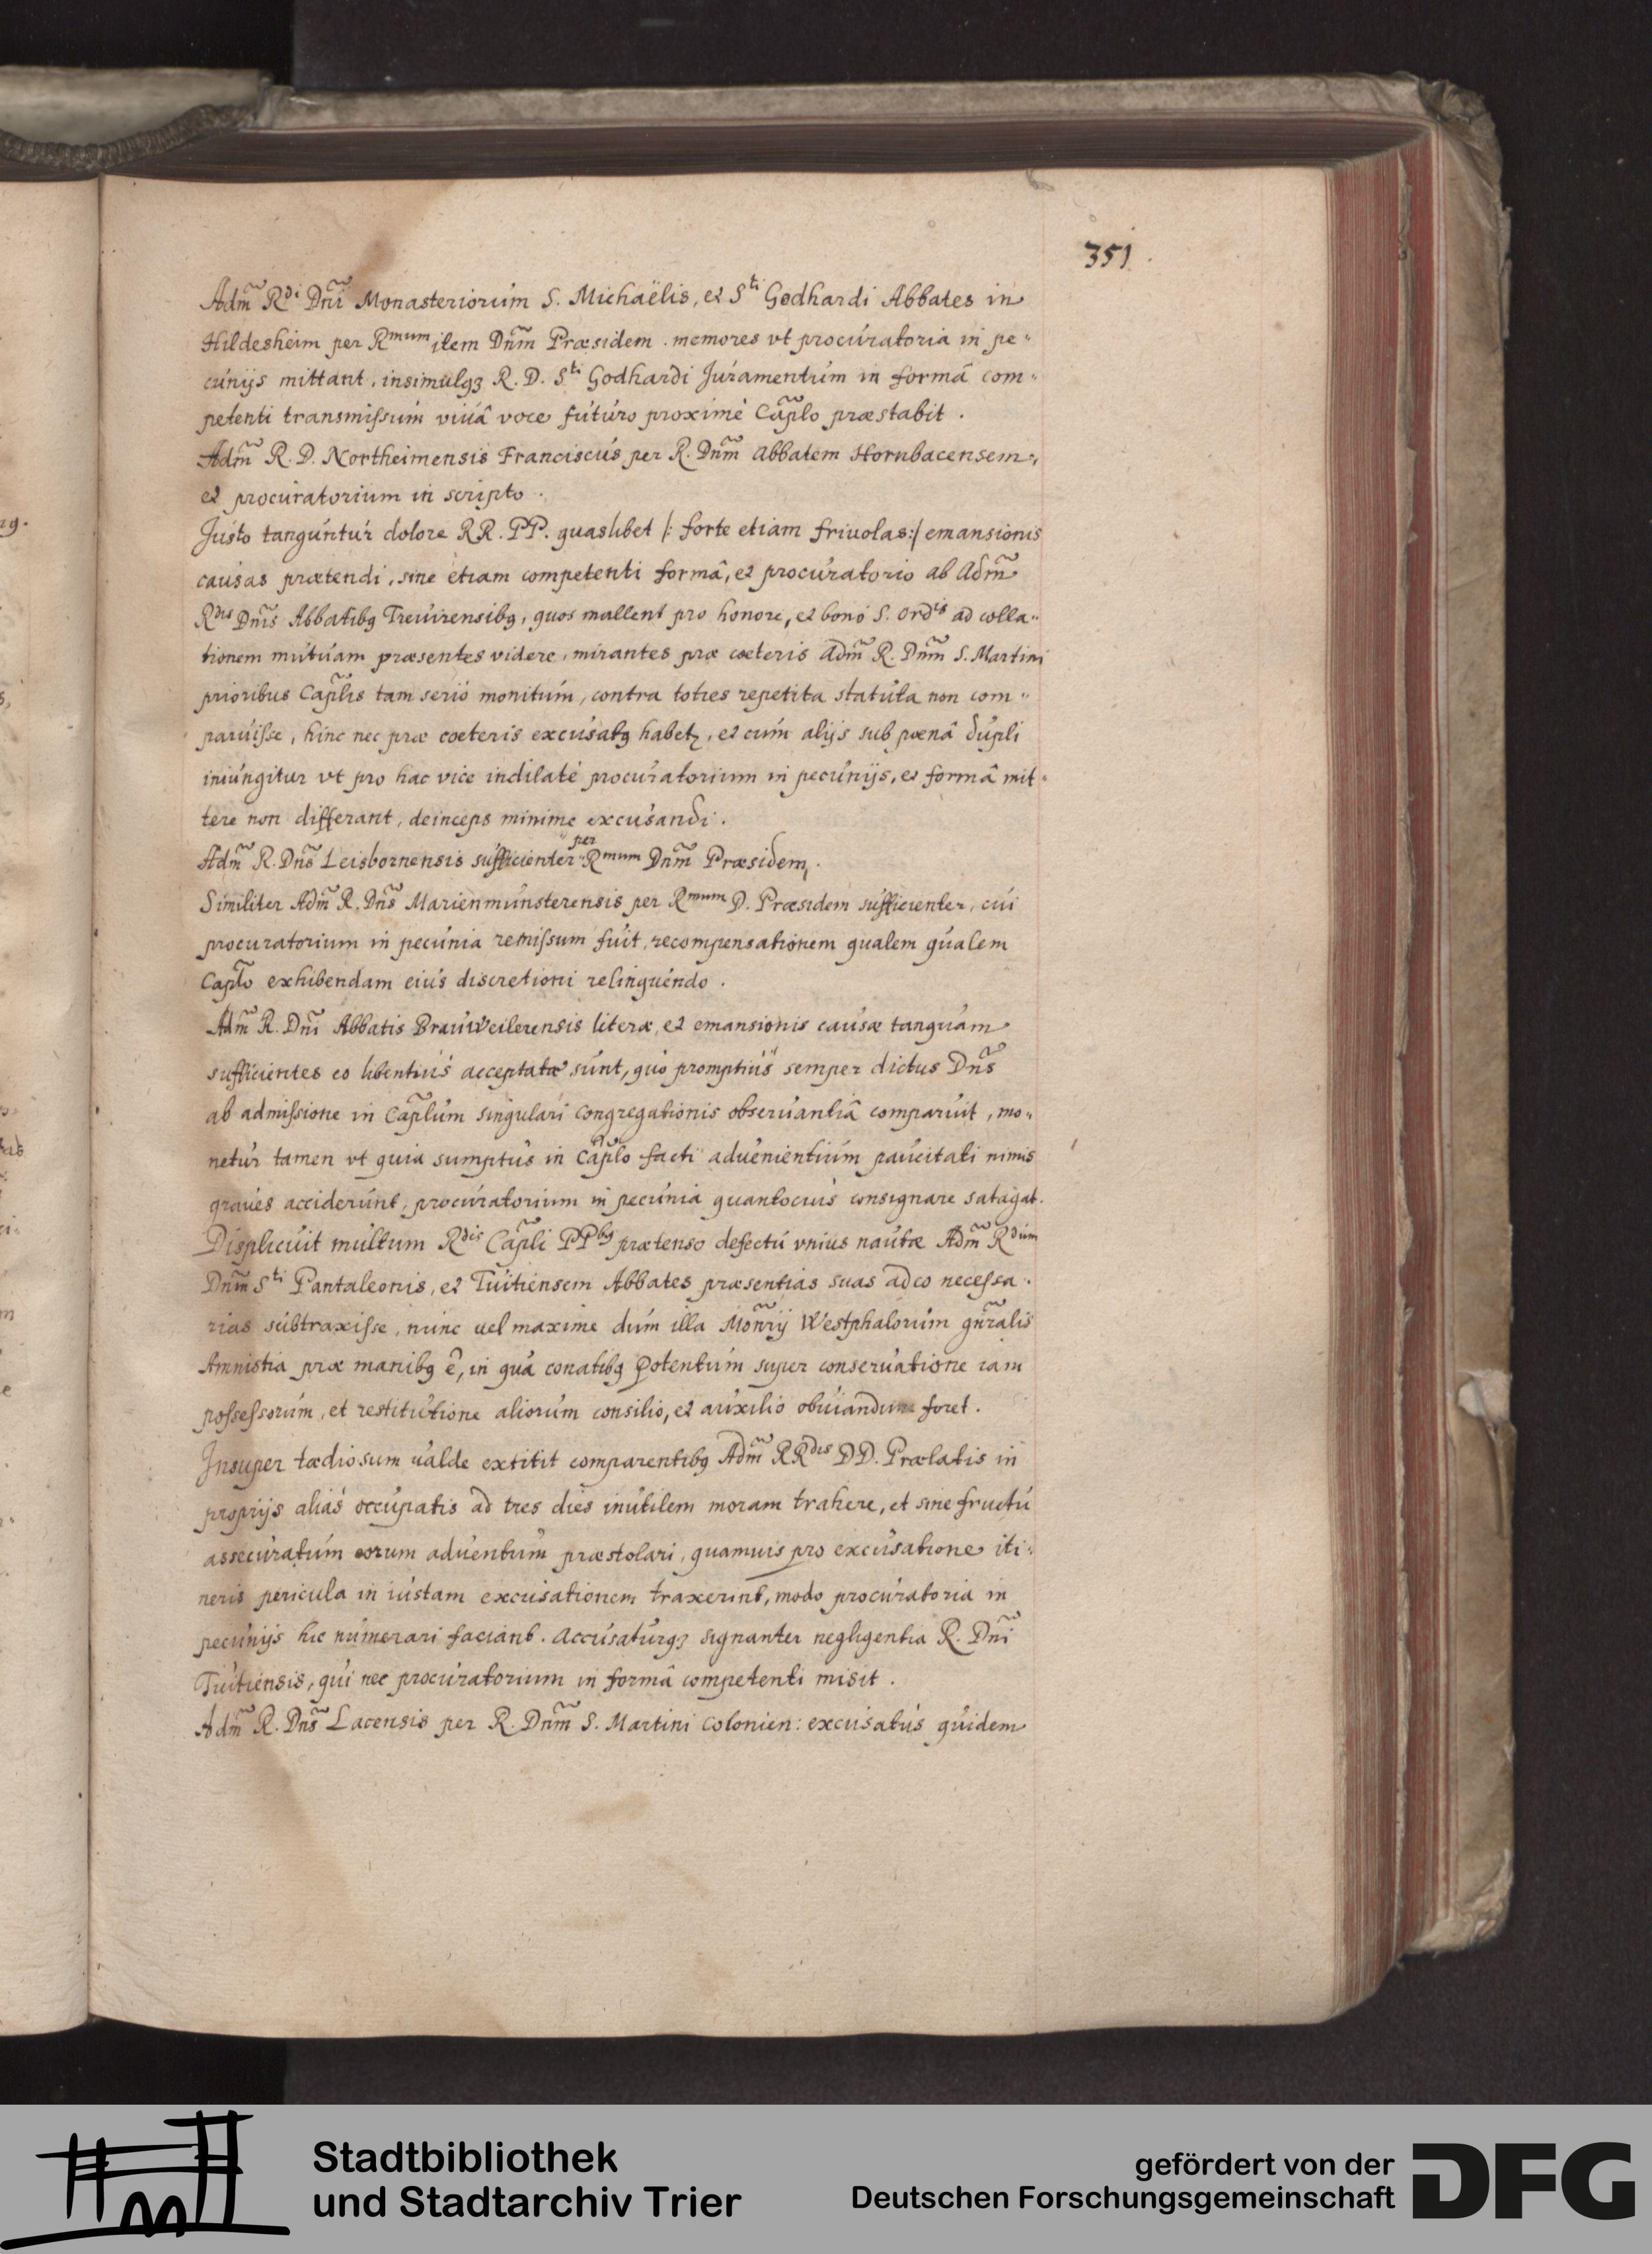 351.
Adm̃ R<sup>di</sup> Dñi Monasteriorum S. Michaëlis, et S<sup>ti</sup> Godhardi Abbates in
Hildesheim per R<sup>mum</sup> item Dñm Præsidem. memores vt procuratoria in pe„
cunijs mittant, insimulqȝ R. D. S<sup>ti</sup> Godhardi Juramentum in formâ com„
petenti transmissum viuâ voce futuro proximè Caplõ præstabit.
Adm̃ R. D. Northeimensis Franciscus per R. Dñm Abbatem Hornbacensem,
et procuratorium in scripto.
Justo tanguntur dolore RR. PP. quaslibet |: forte etiam friuolas :| emansionis
causas prætendi, sine etiam competenti formâ, et procuratorio ab Adm̃
R<sup>dis</sup> Dñis Abbatibꝫ Treuirensibꝫ, quos mallent pro honore, et bono S. Ord<sup>is</sup> ad colla„
tionem mutuam præsentes videre, mirantes præ cæteris Adm̃ R. Dñm S. Martini
prioribus Caplĩs tam serio monitum, contra toties repetita statuta non com„
paruisse, hinc nec præ cœteris excusatꝫ habetꝫ, et cum alijs sub pœnâ dupli
iniungitur vt pro hac vice indilatè procuratorium in pecunijs, et formâ mit„
tere non differant, deinceps minime excusandi.
Adm̃ R. Dñs Leisbornensis sufficienter per R<sup>mum</sup> Dñm Præsidem.
Similiter Adm̃ R. Dñs Marienmunsterensis per R<sup>mum</sup> D. Præsidem sufficienter, cui
procuratorium in pecunia remissum fuit, recompensationem qualem qualem
Caplõ exhibendam eius discretioni relinquendo.
Adm̃ R. Dñi Abbatis Brauweilerensis literæ, et emansionis causæ tanquam
sufficientes eo libentius acceptatæ sunt, quo promptius semper dictus Dñs
ab admissione in Caplũm singulari congregationis obseruantiâ comparuit, mo„
netur tamen vt quia sumptus in Caplõ facti aduenientium paucitati nimis
graues acciderunt, procuratorium in pecunia quantocius consignare satagat.
Displicuit multum R<sup>dis</sup> Caplĩ PP<sup>bꝫ</sup> prætenso defectu vnius nautæ Adm̃ R<sup>dum</sup>
Dñm S<sup>ti</sup> Pantaleonis, et Tuitiensem Abbates præsentias suas adeo necessa„
rias subtraxisse, nunc uel maxime dum illa Monrĩj Westphalorum gñralis
Amnistia præ manibꝫ ê, in qua conatibꝫ Potentum super conseruatione iam
possessorum, et restitutione aliorum consilio, et auxilio obuiandum foret.
Insuper tædiosum ualde extitit comparentibꝫ Adm̃ RR<sup>dis</sup> DD. Prælatis in
proprijs aliàs occupatis ad tres dies inutilem moram trahere, et sine fructu
assecuratum eorum aduentum præstolari, quamuis pro excusatione iti„
neris pericula in iustam excusationem traxerint, modo procuratoria in
pecunijs hic numerari faciant. Accusaturqȝ signanter negligentia R. Dñi
Tuitiensis, qui nec procuratorium in formâ competenti misit.
Adm̃ R. Dñs Lacensis per R. Dñm S. Martini Colonien: excusatus quidem
Stadtbibliothek
und Stadtarchiv Trier
gefördert von der
Deutschen Forschungsgemeinschaft
DFG